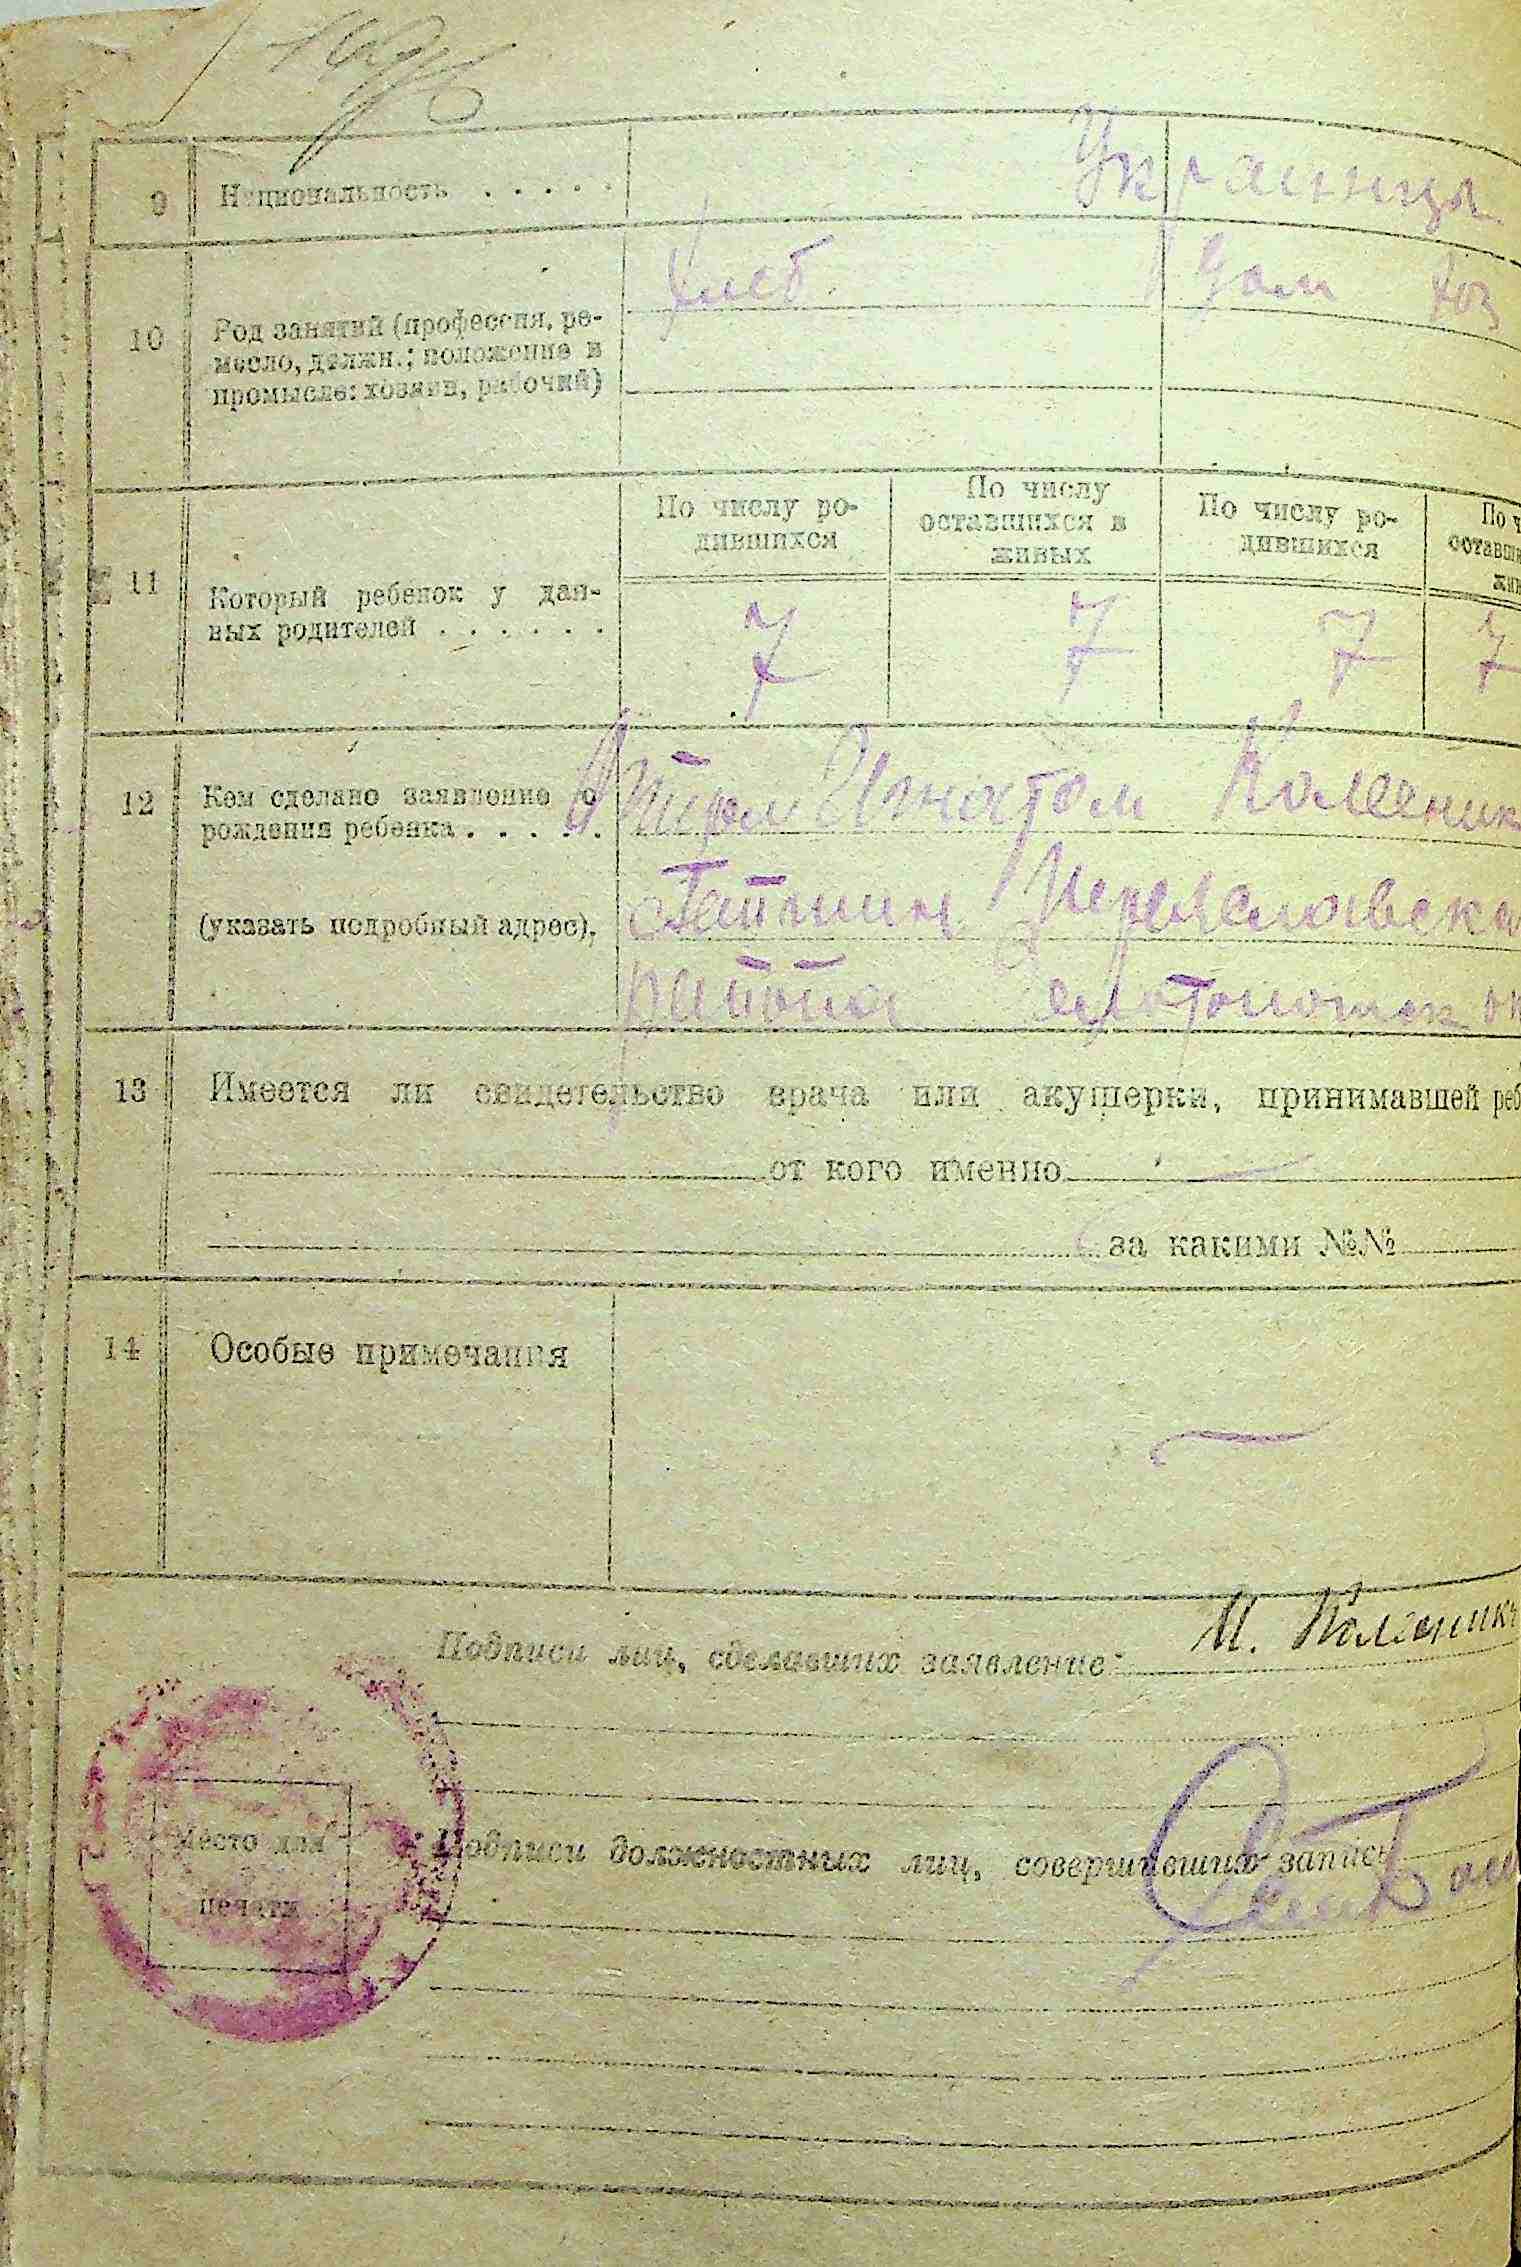 9 Национальность . . . . . Украинцы
10 Род занятий (профессия, ре-
месло, должн.; положение в
промысле: хозяин, рабочий)
Хлеб. Дом хоз
11 Который ребенок у дан-
ных родителей . . . . . .
По числу ро-
дившихся
По числу
оставшихся в
живых
По числу ро-
дившихся
По ч
оставши
жив
7 7 7 7
12 Кем сделано заявление о
рождении ребенка . . . . .
Игнатом Колесник
(указать подробный адрес),
Переяславска
района Золотоношск ок
13 Имеется ли свидетельство врача или акушерки, принимавшей реб
от кого именно
за какими №№
14 Особые примечания
Подписи лиц, сделавших заявление: И. Колесникъ
Место для
печати
Подписи должностных лиц, совершивших запись